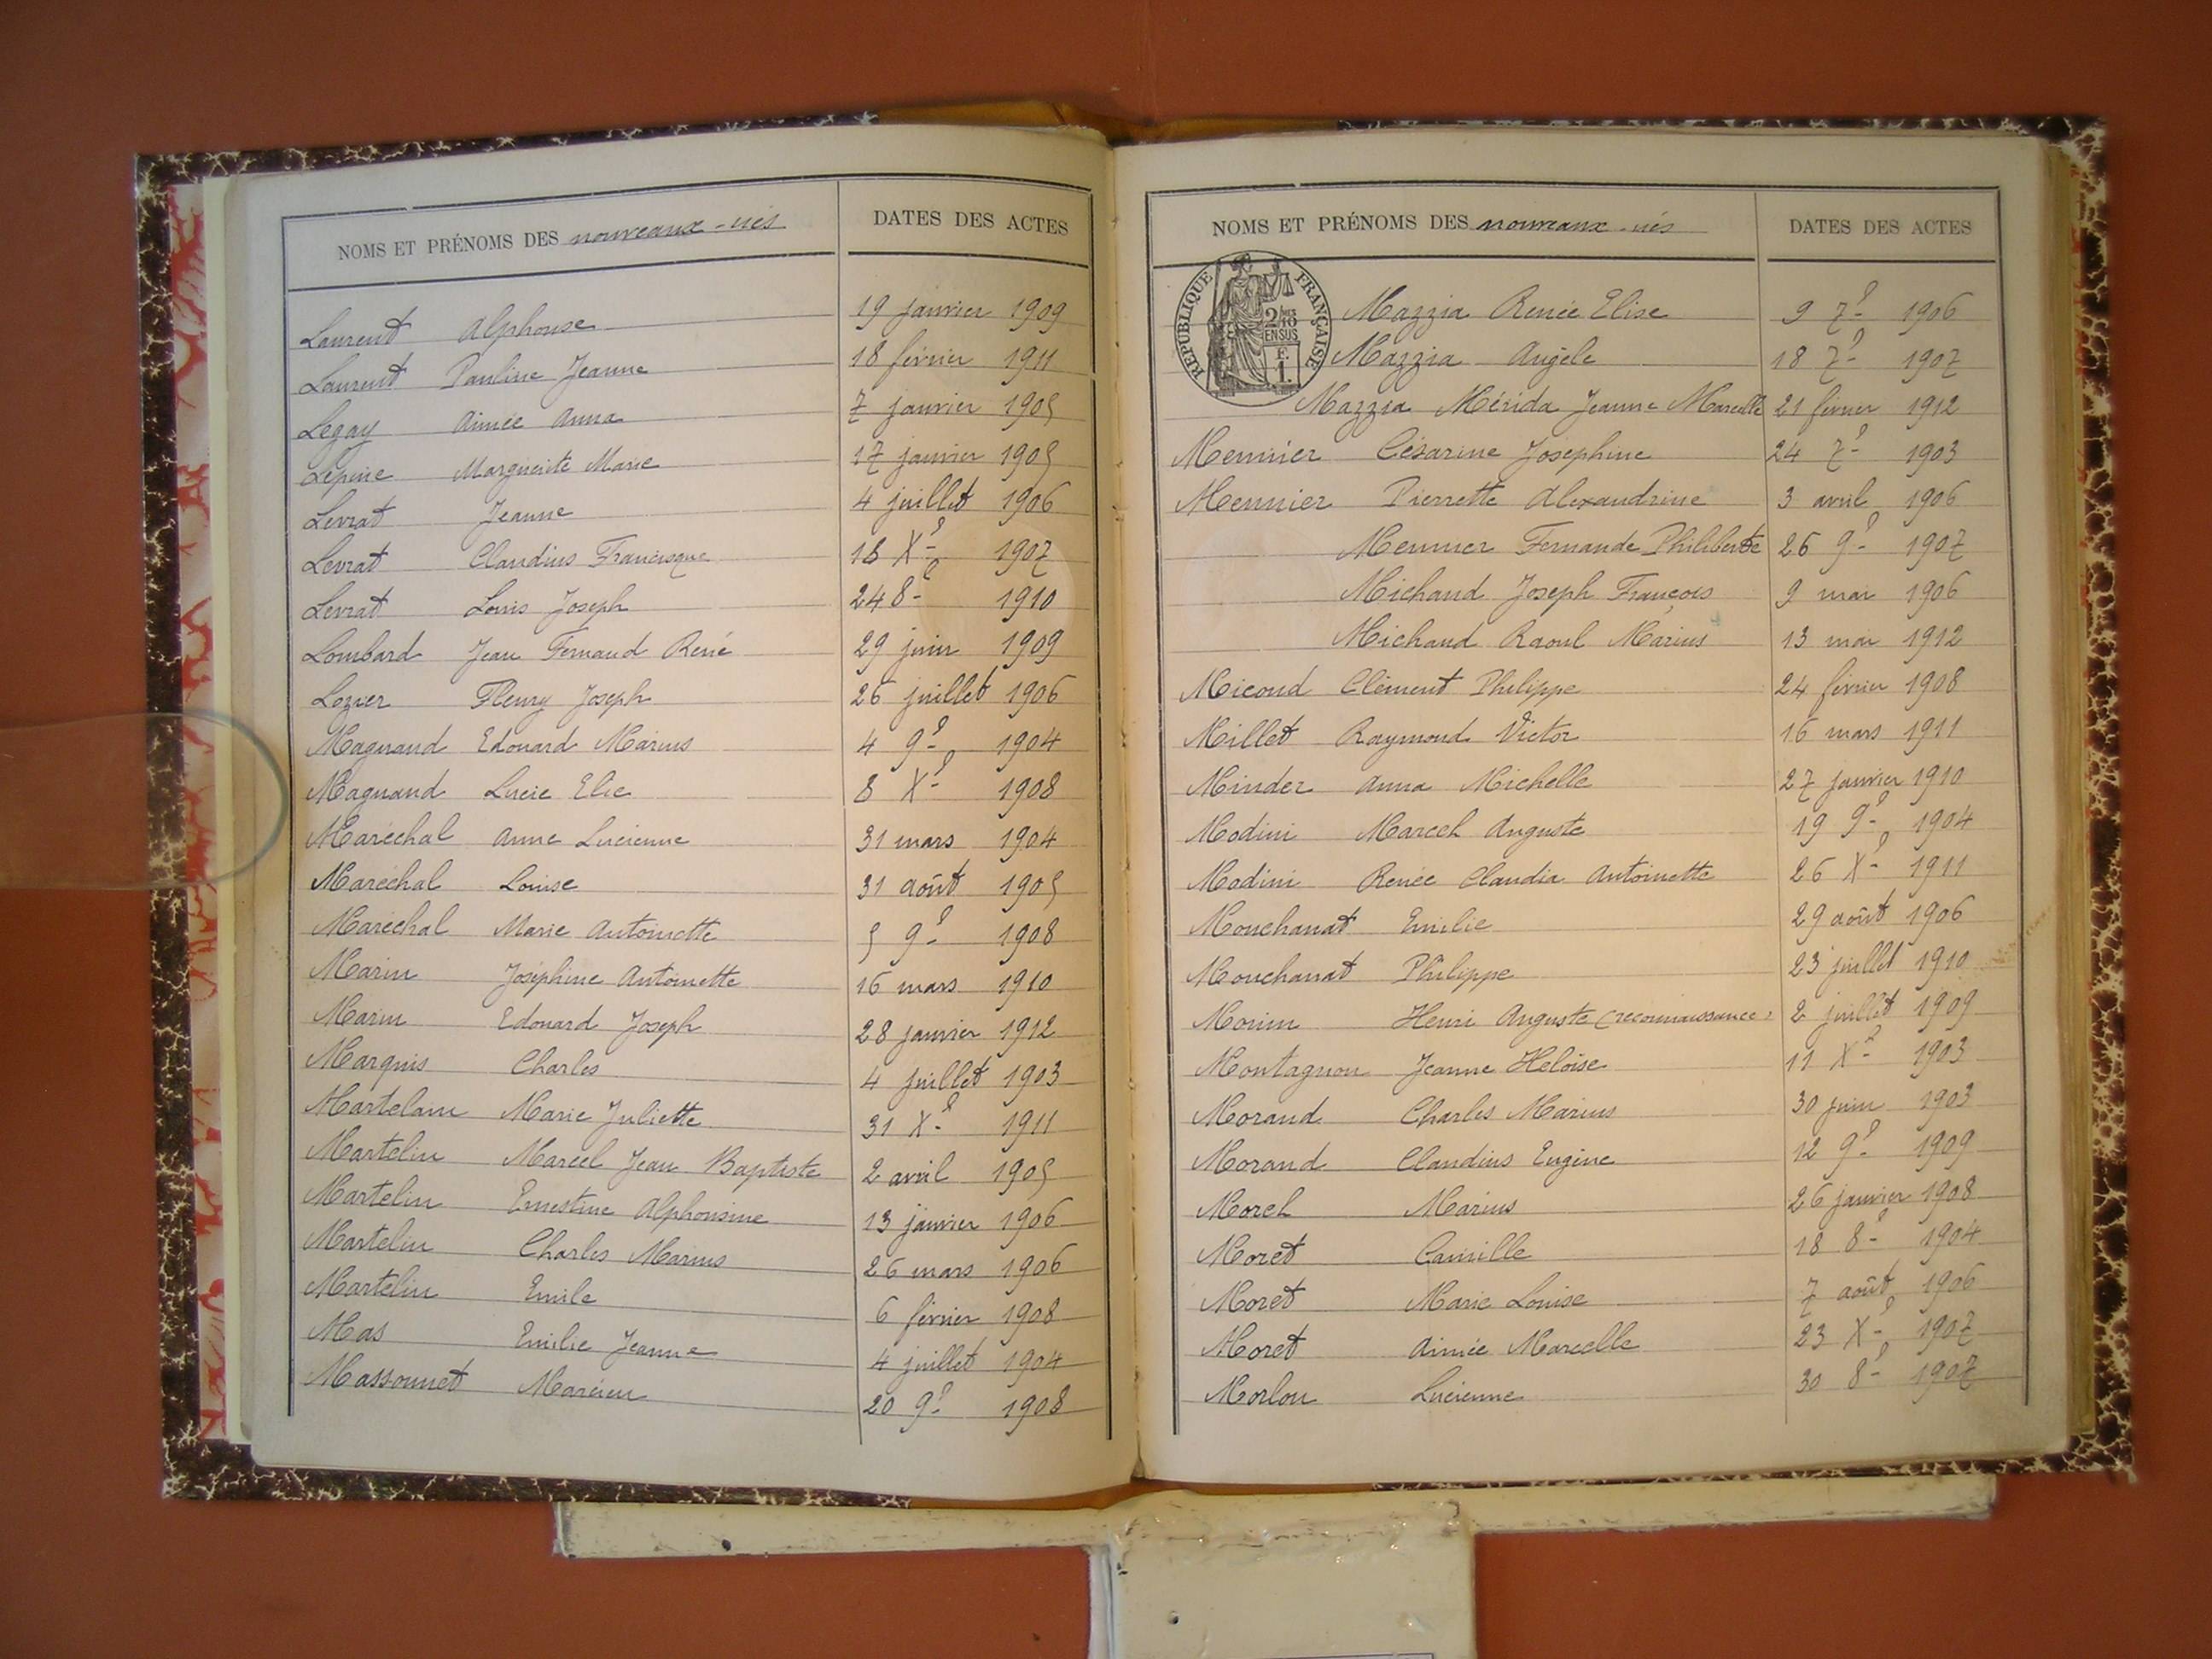 NOMS ET PRÉNOMS DES nouveaux-nés DATES DES ACTES
Laurent Alphonse 19 janvier 1909
Laurent Pauline Jeanne 18 février 1911
Legay Aimée Anna 7 janvier 1905
Lépine Marguerite Marie 17 janvier 1905
Levrat Jeanne 4 juillet 1906
Levrat Claudius Francisque 18 Xe 1907
Levrat Louis Joseph 24 8e 1910
Lombard Jean Fernand René 29 juin 1909
Lozier Fleury Joseph 26 juillet 1906
Magnand Edouard Marius 4 9e 1904
Magnand Lucie Elie 8 Xe 1908
Maréchal Anne Lucienne 31 mars 1904
Maréchal Louise 31 août 1905
Maréchal Marie Antoinette 5 9e 1908
Marin Joséphine Antoinette 16 mars 1910
Marin Edouard Joseph 28 janvier 1912
Marquis Charles 4 juillet 1903
Martelain Marie Juliette 31 Xe 1911
Martelin Marcel Jean Baptiste 2 avril 1905
Martelin Ernestine Alphonsine 13 janvier 1906
Martelin Charles Marius 26 mars 1906
Martelin Emile 6 février 1908
Mas Emilie Jeanne 4 juillet 1904
Massonnet 20 9e 1908
NOMS ET PRÉNOMS DES nouveaux-nés DATES DES ACTES
RÉPUBLIQUE FRANÇAISE
2/10 EN SUS
F. 1.
Mazzia Renée Elise 9 7e 1906
Mazzia Angèle 18 7e 1907
Mazzia Mérida Jeanne Marcelle 21 février 1912
Meunier Césarine Joséphine 24 7e 1903
Meunier Pierrette Alexandrine 3 avril 1906
Meunier Fernande Philiberte 26 9e 1907
Michaud Joseph François 9 mai 1906
Michaud Raoul Marius 13 mai 1912
Micoud Clément Philippe 24 février 1908
Millet Raymond Victor 16 mars 1911
Minder Anna Michelle 27 janvier 1910
Modini Marcel Auguste 19 9e 1904
Modini Renée Claudia Antoinette 26 Xe 1911
Mouchanat Emilie 29 août 1906
Mouchanat Philippe 23 juillet 1910
Monin Henri Auguste (reconnaissance) 2 juillet 1909
Montagnon Jeanne Héloïse 11 Xe 1903
Morand Charles Marius 30 juin 1903
Morand Claudius Eugène 12 9e 1909
Morel Marius 26 janvier 1908
Moret Camille 18 8e 1904
Moret Marie Louise 7 août 1906
Moret Aimée Marcelle 23 Xe 1907
Morlon Lucienne 30 8e 1907